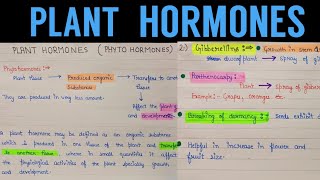 PLANT HORMONES
PLANT HORMONES (PHYTO HORMONES)
Phytohormone :-
Plant tissue → Produced organic substance → Transfer to another tissue
They are produced in very less amount.
Affect the growth
and development
A plant hormone may be defined as an organic substance
which is produced in one tissue of the plant and transfer
to another tissue where in small quantities it affect
the physiological activities of the plant specially growth
and development.
2) Gibberellins :→ Growth in stem
plant → spray of gibb
Parthenocarpy :-
Plant → spray of gibb
Example :- Grapes, oranges etc.
Breaking of dormancy :→ Seeds exhibit d
Helpful in increase in flower and
fruit size.